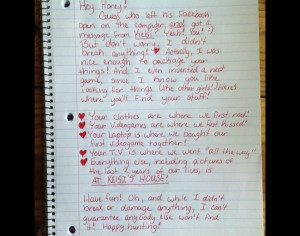 Hey Honey!
Guess who left his Facebook
open on the computer and got a
message from Keisi? Yeah! You! :)
But don't worry, I didn't
break anything! ♥ Actually, I was
nice enough to package your
things! And I even invented a neat
game, since I know you like
looking for things (like other girls!) Here's
where you'll find your stuff:
♥ Your clothes are where we first met!
♥ Your videogames are where we first kissed!
♥ Your laptop is where we bought our
first videogame together!
♥ Your T.V is where we went "all the way"!
♥ Everything else, including pictures of
the last 2 years of our lives, is
AT KEISI'S HOUSE!
Have fun! Oh, and while I didn't
break or damage anything, I can't
guarantee anybody else won't find
it! Happy hunting!